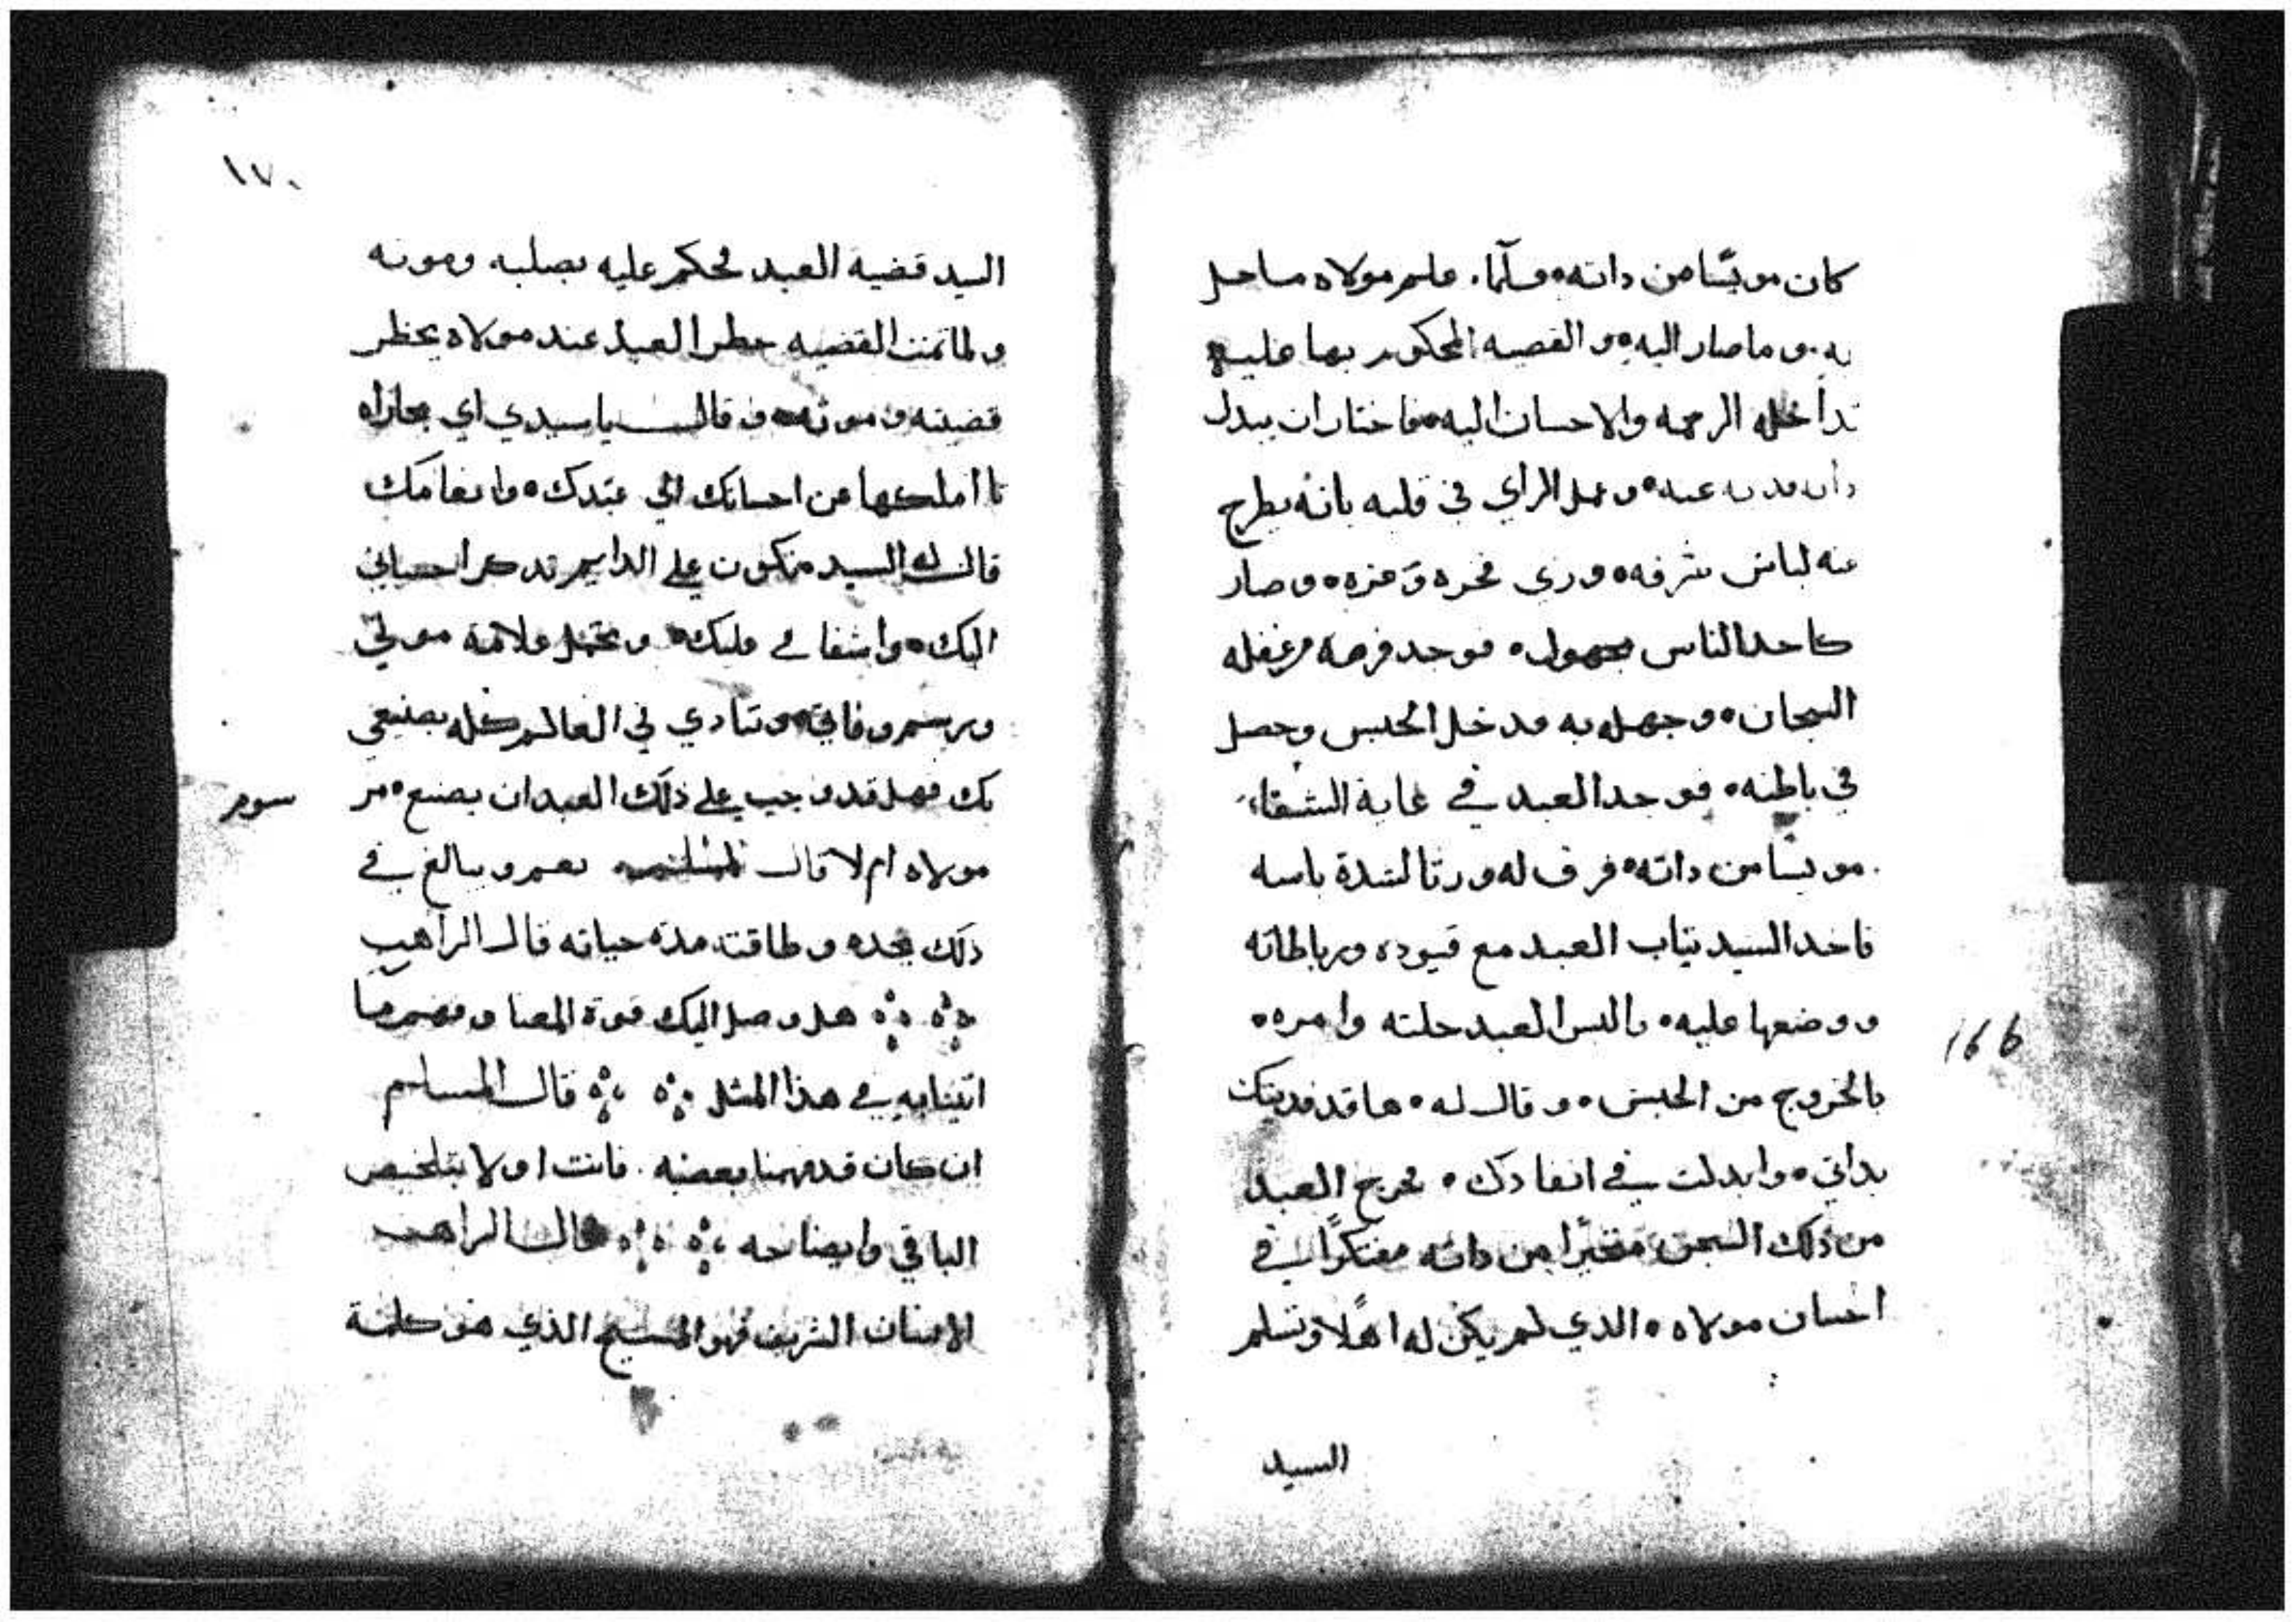 كان مويسا من داته ولما علم مولاه ما حل
به وما صار اليه والقصيه المحكور بها عليه
تداخله الرحمه والاحسان اليه فاختار ان يبدل
داته فديه عنه وعمل الراي في قلبه بانه يطرح
عنه لباس شرفه وزي فخره وعزه وصار
كاحد الناس مجهول فوجد فرصه من غفله
السجان وجهله به فدخل الحبس وحصل
في باطنه فوجد العبد في غاية الشقاء
مويسا من داته فرق له ورتا لشدة ياسه
فاخد السيد تياب العبد مع قيوده ورباطاته
ووضعها عليه والبس العبد حلته وامره
بالخروج من الحبس وقال له ها قد فديتك
بداتي وابدلت في انفادك فخرج العبد
من ذلك السجن متحيرا من داته مفتكرا في
احسان مولاه الدي لم يكن له اهلا وتسلم
السيد
166
١٧٠
السيد قضية العبد فحكم عليه بصلبه وموته
ولما تمت القضيه حظر العبد عند مولاه بحظر
قضيته وموته وقال يا سيدي اي مجازاه
انا املكها عن احسانك الي عبدك وانعامك
قال له السيد متكون علي الدايم تدكر احساني
اليك واشفاقي عليك وتحتمل علامة موتي
وبرسم وفاتي وتنادي في العالم كله بصنيعي
بك فهل قد وجب علي ذلك العبد ان يصنع مر
سوم
مولاه ام لا قال المسلم نعم ويبالغ في
ذلك بجده وطاقته مدة حياته قال الراهب
هل وصل اليك قوة المعنا وفهم ما
اتينا به في هذا المثل قال المسلم
ان كان قد فهمنا بعضه فانت اولا بتلخيص
الباقي وايضاحه قال الراهب
الانسان الشريف فهو المسيح الذي هو كلمة